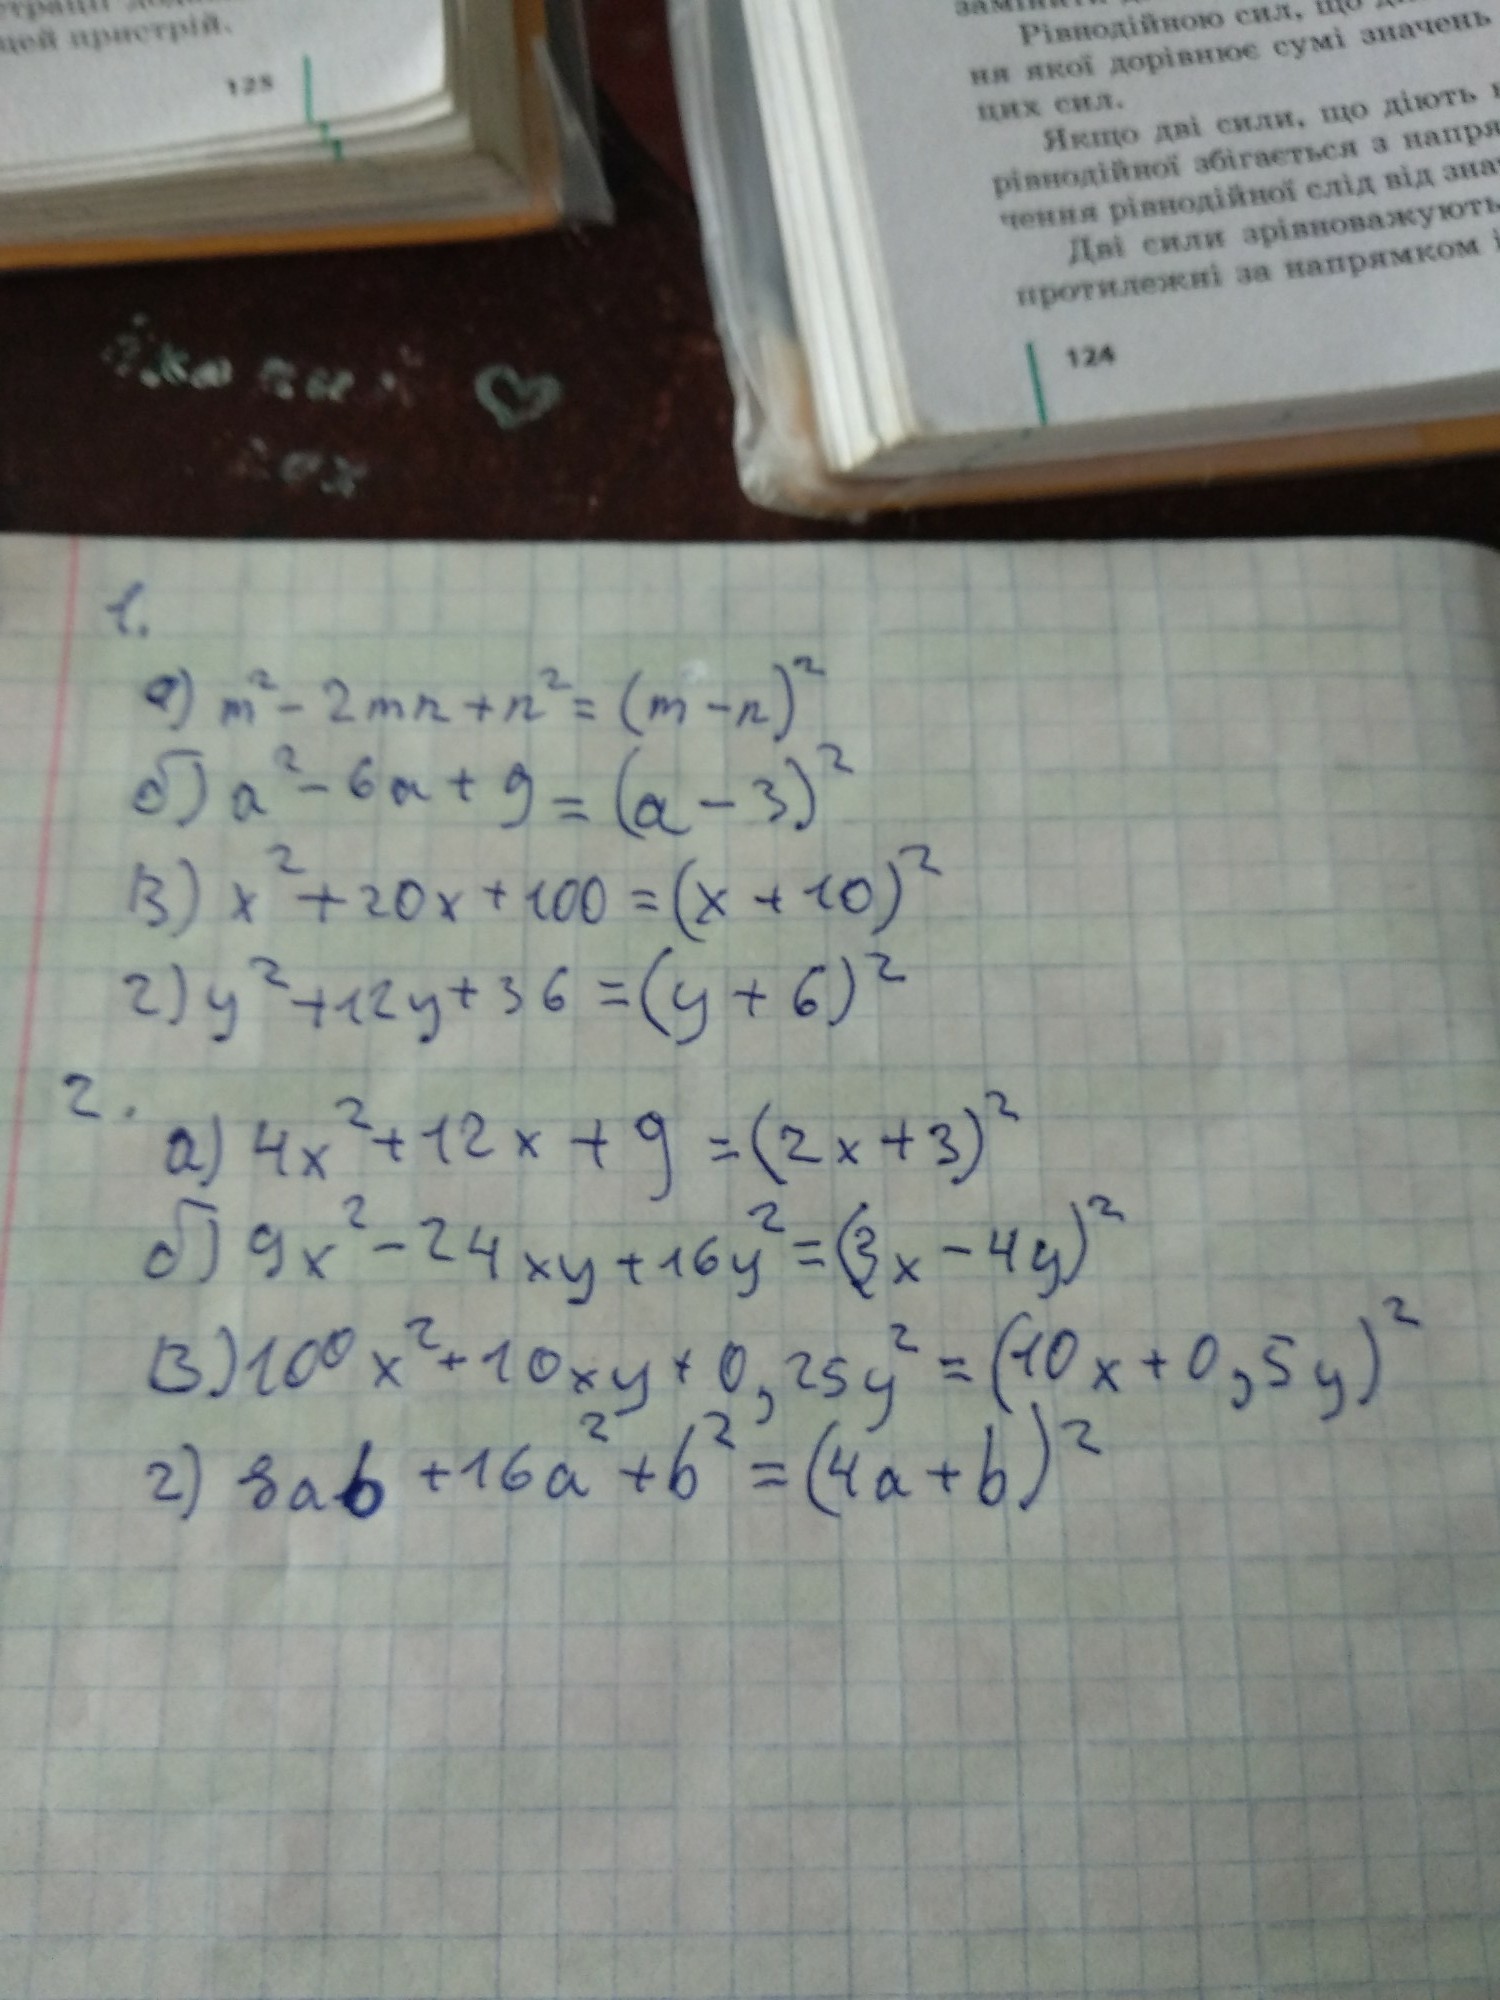 цей пристрій.
125
Рівнодійною сил, що
ня якої дорівнює сумі значень
цих сил.
Якщо дві сили, що діють
рівнодійної збігається з
чення рівнодійної слід від
Дві сили зрівноважують
протилежні за напрямком і
124
1.
а) m² - 2mn + n² = (m - n)²
б) a² - 6a + 9 = (a - 3)²
в) x² + 20x + 100 = (x + 10)²
г) y² + 12y + 36 = (y + 6)²
2.
а) 4x² + 12x + 9 = (2x + 3)²
б) 9x² - 24xy + 16y² = (3x - 4y)²
в) 100x² + 10xy + 0,25y² = (10x + 0,5y)²
г) 8ab + 16a² + b² = (4a + b)²